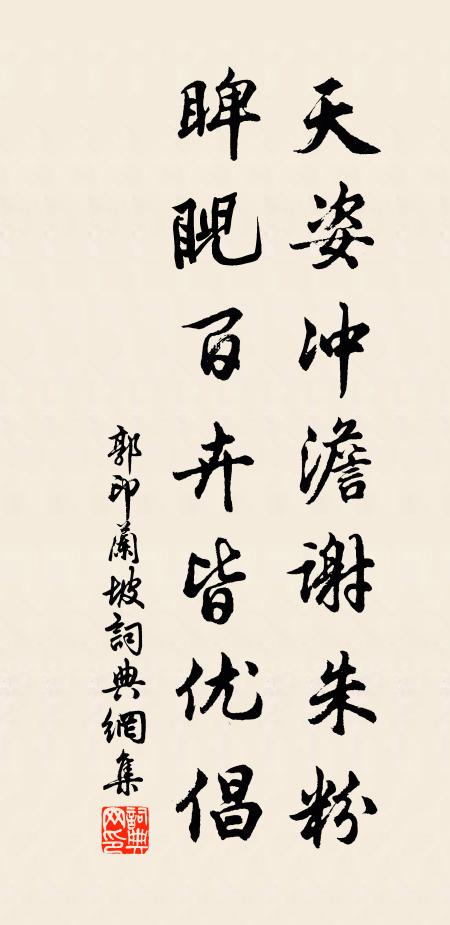 天姿冲澹谢朱粉
睥睨百卉皆优倡
郭印蘭坡詞典網集
詞典网印